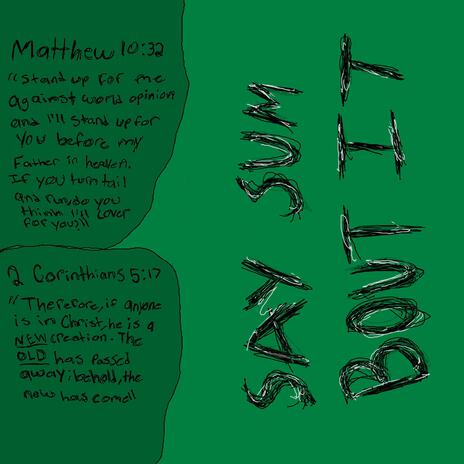 Matthew 10:32
"Stand up for me
against world opinion
and I'll stand up for
you before my
Father in heaven.
If you turn tail
and run, do you
think I'll cover
for you?"
2 Corinthians 5:17
"Therefore, if anyone
is in Christ, he is a
NEW creation. The
OLD has passed
away; behold, the
new has come"
SAY SUM
BOUT IT